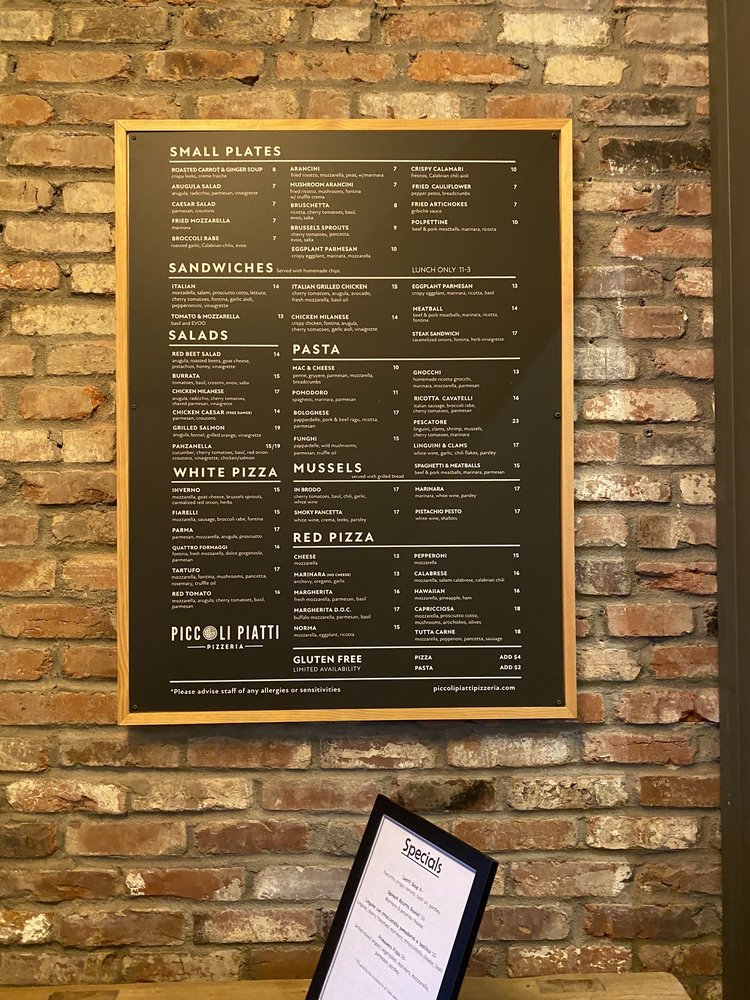 SMALL PLATES
ROASTED CARROT & GINGER SOUP 8
crispy leeks, crème fraiche
ARUGULA SALAD 7
arugula, radicchio, parmesan, vinaigrette
CAESAR SALAD 7
parmesan, croutons
FRIED MOZZARELLA 7
marinara
BROCCOLI RABE 7
roasted garlic, Calabrian chilis, evoo
ARANCINI 7
fried risotto, mozzarella, peas, w/marinara
MUSHROOM ARANCINI 7
fried risotto, mushrooms, fontina
w/ truffle crema
BRUSCHETTA 8
ricotta, cherry tomatoes, basil,
evoo, saba
BRUSSELS SPROUTS 9
cherry tomatoes, pancetta,
evoo, saba
EGGPLANT PARMESAN 10
crispy eggplant, marinara, mozzarella
CRISPY CALAMARI 10
fresnos, Calabrian chili aioli
FRIED CAULIFLOWER 7
pepper pesto, breadcrumbs
FRIED ARTICHOKES 7
gribiche sauce
POLPETTINE 10
beef & pork meatballs, marinara, ricotta
SANDWICHES served with homemade chips LUNCH ONLY 11-3
ITALIAN 14
mortadella, salami, prosciutto cotto, lettuce,
cherry tomatoes, fontina, garlic aioli,
pepperoncini, vinaigrette
TOMATO & MOZZARELLA 13
basil and EVOO
ITALIAN GRILLED CHICKEN 15
cherry tomatoes, arugula, avocado,
fresh mozzarella, basil oil
CHICKEN MILANESE 14
crispy chicken, fontina, arugula,
cherry tomatoes, garlic aioli, vinaigrette
EGGPLANT PARMESAN 13
crispy eggplant, marinara, ricotta, basil
MEATBALL 14
beef & pork meatballs, marinara, ricotta,
fontina
STEAK SANDWICH 17
caramelized onions, fontina, herb vinaigrette
SALADS
RED BEET SALAD 14
arugula, roasted beets, goat cheese,
pistachios, honey, vinaigrette
BURRATA 15
tomatoes, basil, crostini, evoo, saba
CHICKEN MILANESE 17
arugula, radicchio, cherry tomatoes,
shaved parmesan, vinaigrette
CHICKEN CAESAR (FREE RANGE) 14
parmesan, croutons
GRILLED SALMON 19
arugula, fennel, grilled orange, vinaigrette
PANZANELLA 15/19
cucumber, cherry tomatoes, basil, red onion
croutons, vinaigrette, chicken/salmon
PASTA
MAC & CHEESE 10
penne, gruyere, parmesan, mozzarella,
breadcrumbs
POMODORO 11
spaghetti, marinara, parmesan
BOLOGNESE 17
pappardele, pork & beef ragu, ricotta,
parmesan
FUNGHI 15
pappardelle, wild mushrooms,
parmesan, truffle oil
GNOCCHI 13
homemade ricotta gnocchi,
marinara, mozzarella, parmesan
RICOTTA CAVATELLI 16
Italian sausage, broccoli rabe,
cherry tomatoes, parmesan
PESCATORE 23
linguini, clams, shrimp, mussels,
cherry tomatoes, marinara
LINGUINI & CLAMS 17
white wine, garlic, chili flakes, parsley
SPAGHETTI & MEATBALLS 15
beef & pork meatballs, marinara, parmesan
WHITE PIZZA
INVERNO 15
mozzarella, goat cheese, brussels sprouts,
carmalized red onion, herbs
FIARELLI 15
mozzarella, sausage, broccoli rabe, fontina
PARMA 17
parmesan, mozzarella, arugula, prosciutto
QUATTRO FORMAGGI 16
fontina, fresh mozzarella, dolce gorgonzola,
parmesan
TARTUFO 17
mozzarella, fontina, mushrooms, pancetta,
rosemary, truffle oil
RED TOMATO 16
mozzarella, arugula, cherry tomatoes, basil,
parmesan
MUSSELS served with grilled bread
IN BRODO 17
cherry tomatoes, basil, chili, garlic,
white wine
SMOKY PANCETTA 17
white wine, crema, leeks, parsley
MARINARA 17
marinara, white wine, parsley
PISTACHIO PESTO 17
white wine, shallots
RED PIZZA
CHEESE 13
mozzarella
MARINARA (NO CHEESE) 13
anchovy, oregano, garlic
MARGHERITA 16
fresh mozzarella, parmesan, basil
MARGHERITA D.O.C. 17
buffalo mozzarella, parmesan, basil
NORMA 15
mozzarella, eggplant, ricotta
PEPPERONI 15
mozzarella
CALABRESE 16
mozzarella, salami calabrese, calabrian chili
HAWAIIAN 16
mozzarella, pineapple, ham
CAPRICCIOSA 18
mozzarella, prosciutto cotto,
mushrooms, artichokes, olives
TUTTA CARNE 18
mozzarella, pepperoni, pancetta, sausage
PICCOLI PIATTI
PIZZERIA
GLUTEN FREE
LIMITED AVAILABILITY
PIZZA ADD $4
PASTA ADD $2
*Please advise staff of any allergies or sensitivities
piccolipiattipizzeria.com
Specials